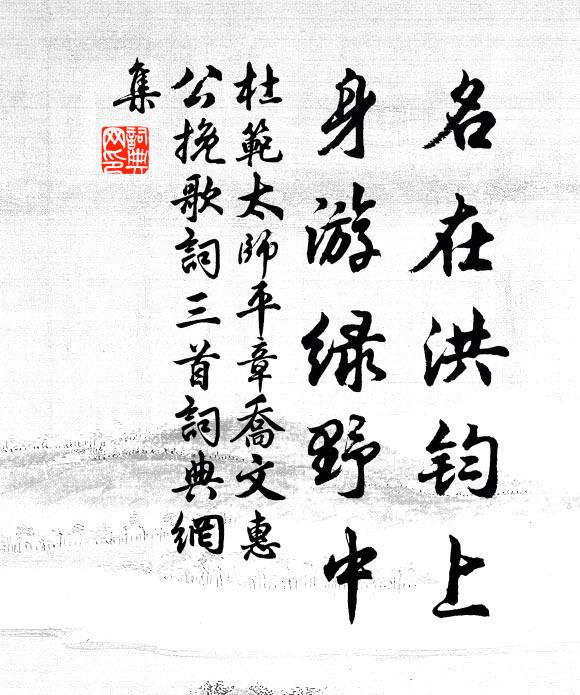 名在洪钧上
身游绿野中
杜範太師平章喬文惠
公挽歌詞三首詞典網
集
詞典
网印